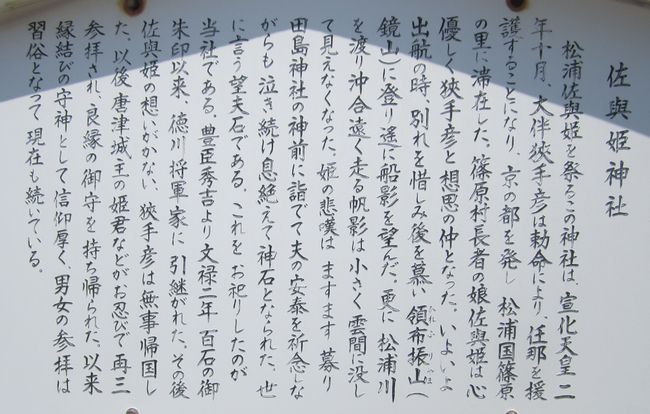 佐與姫神社
松浦佐與姫を祭るこの神社は、宣化天皇二
年十月、大伴狹手彦は勅命により、任那を援
護することになり、京の都を発し松浦国篠原
の里に滞在した。篠原村長者の娘佐與姫は心
優しく狹手彦と想思の仲となった。いよいよ
出航の時、別れを惜しみ後を慕い領布振山(
鏡山)に登り遙に船影を望んだ。更に松浦川
を渡り沖合遠く走る帆影は小さく雲間に没し
て見えなくなった。姫の悲嘆はますます募り
田島神社の神前に詣でて夫の安泰を祈念しな
がらも泣き続け息絶えて神石となられた。世
に言う望夫石である。これをお祀りしたのが
当社である。豊臣秀吉より文禄二年百石の御
朱印以来、徳川将軍家に引継がれた。その後
佐與姫の想いがかない、狹手彦は無事帰国し
た。以後唐津城主の姫君などがお忍びで再三
参拝され、良縁の御守を持ち帰られた。以来
縁結びの守神として信仰厚く、男女の参拝は
習俗となって現在も続いている。